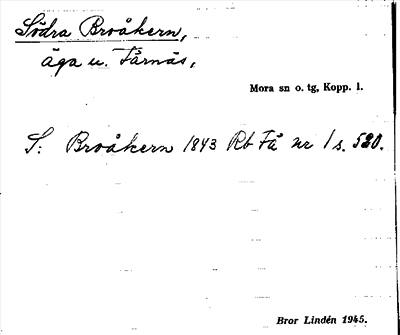 Södra Broåkern,
äga u. Färnäs,
Mora sn o. tg, Kopp. l.
S: Broåkern 1843 Rb Fä nr 1 s. 520.
Bror Lindén 1945.